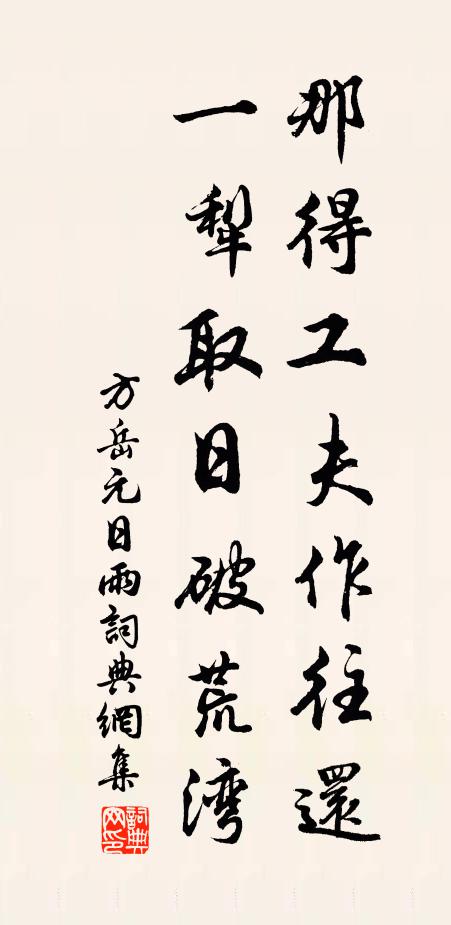 那得工夫作往還
一犁取日破荒湾
方岳元日雨詞典網集
詞典網印